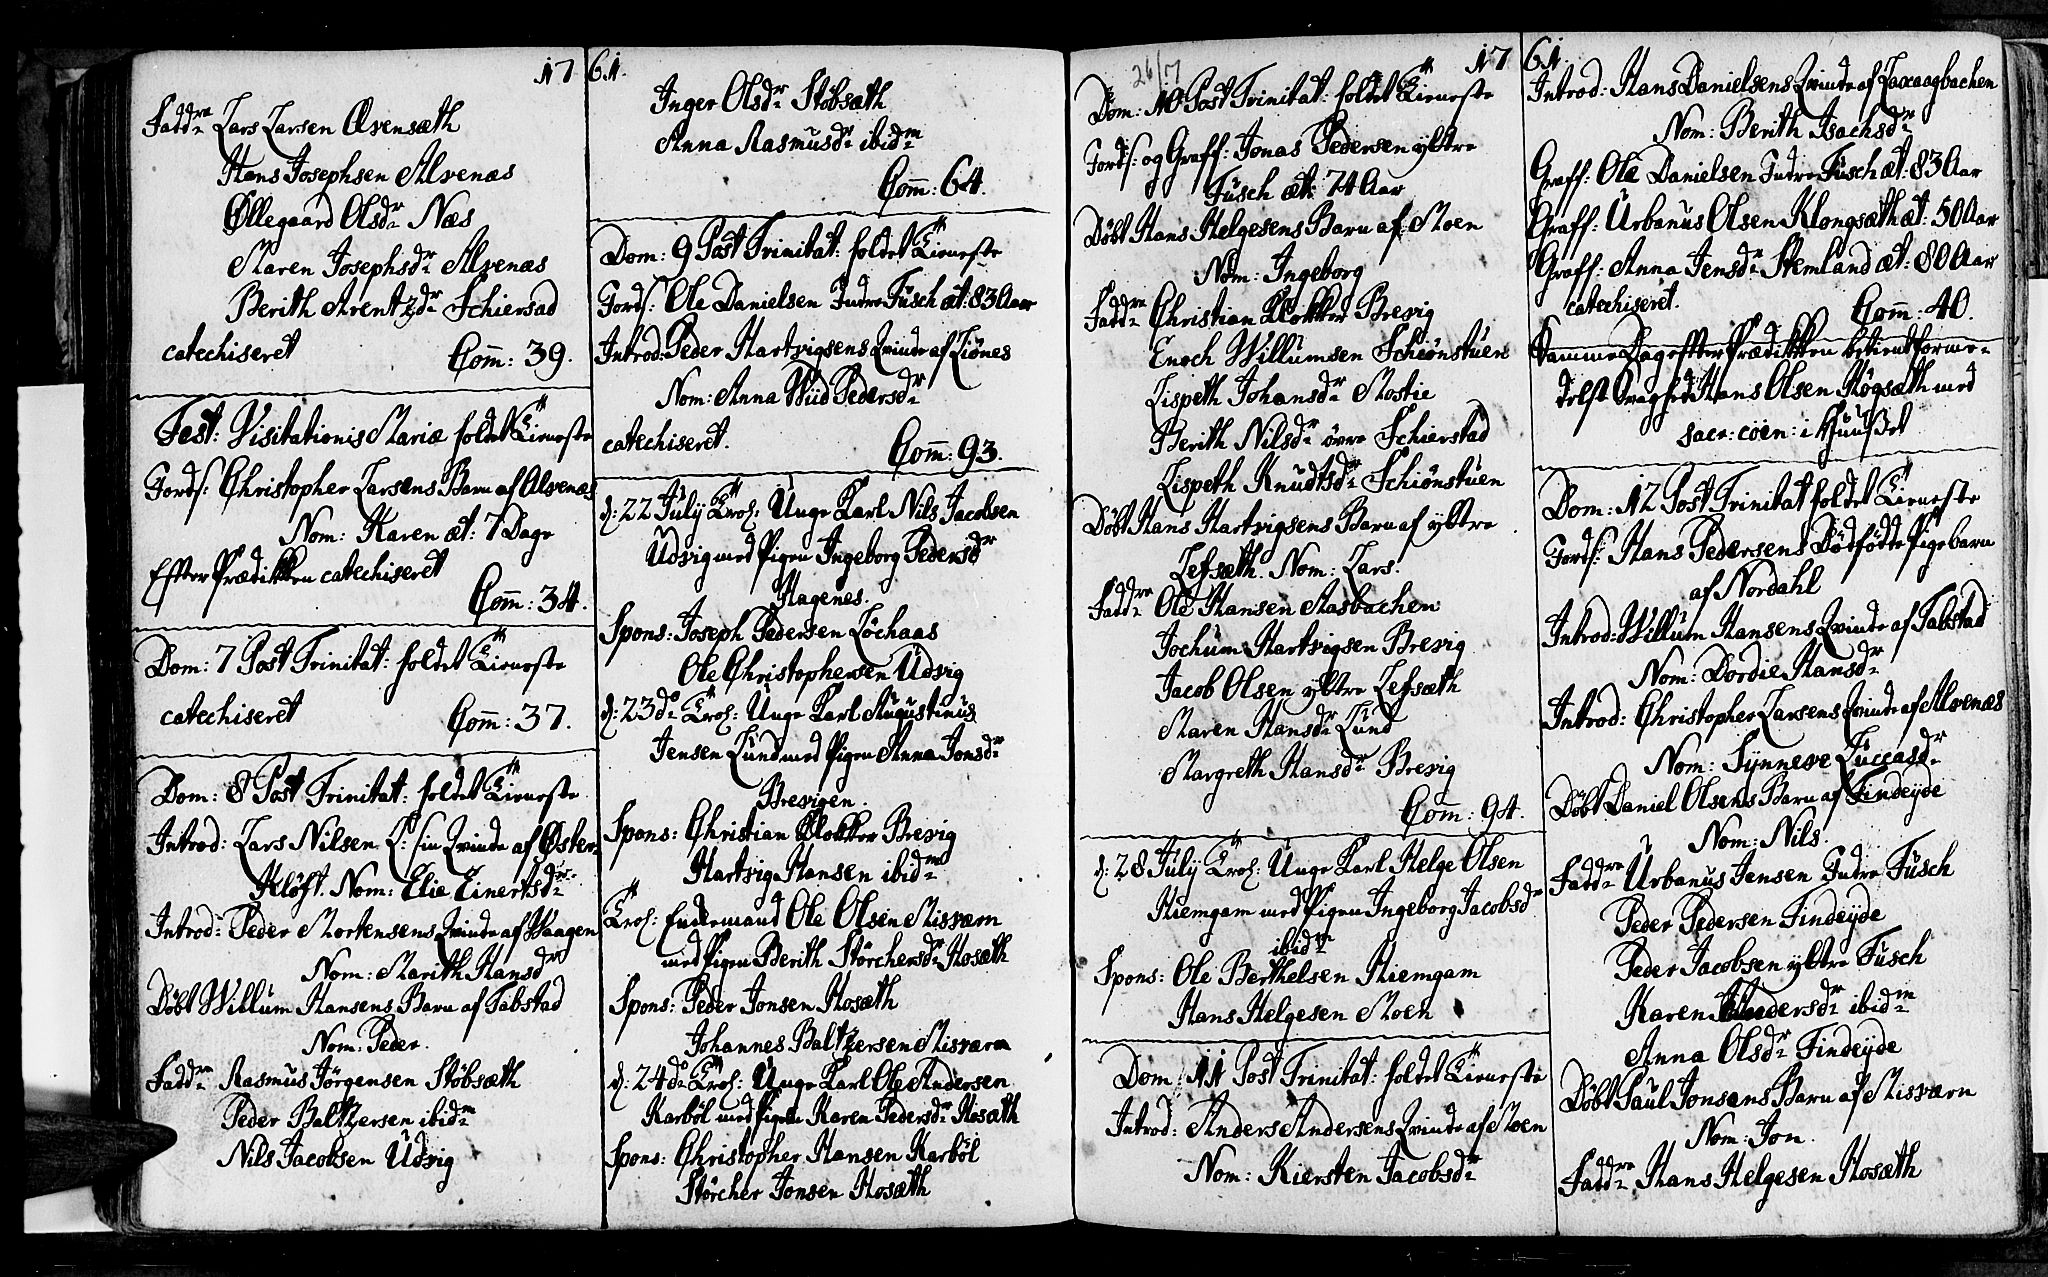 1761.
Fadd^re Lars Larsen Øvensæth
Hans Josephsen Alvenæs
Øllegaard Olsd^r Næs
Maren Josephsd^r Alvenæs
Berith Arentzd^r Schiersad
catechiseret Com̄: 39.
Fest: Visitationis Mariæ holdet Tieneste
Jords: Christopher Larsens Barn af Alvenæs
Nom: Karen æt: 7 Dage
Efter Prædikken catechiseret
Com̄: 34.
Dom: 7 Post Trinitat: holdet Tieneste
catechiseret Com̄: 37.
Dom: 8 Post Trinitat: holdet Tieneste
Introd: Lars Nilsen L: sin Qvinde af Øster-
Kløft. Nom: Elie Einertsd^r
Introd: Peder Mortensens Qvinde af Waagen
Nom: Marith Hansd^r
Døbt Willum Hansens Barn af Tabstad
Nom: Peder.
Fadd^re Rasmus Jørgensen Støbsæth
Peder Baltzersen ibid^m
Nils Jacobsen Udvig
Inger Olsd^r Støbsæth
Anna Rasmusd^r ibid^m
Com̄: 64.
Dom: 9 Post Trinitat: holdet Tieneste
Jords: Ole Danielsen Indre Fusch æt: 83 Aar
Introd: Peder Hartvigsens Qvinde af Liønes
Nom: Anna Wiid Pedersd^r
catechiseret. Com̄: 93.
d: 22 July Trol: Unge Karl Nils Jacobsen
Udvig med Pigen Ingeborg Pedersd^r
Hagenes.
Spons: Joseph Pedersen Løchaas
Ole Christophersen Udvig
d: 23d^o Trol: Unge Karl Augustinus
Jensen Lund med Pigen Anna Jonsd^r
Brevigen.
Spons: Christian Klokker Brevig
Hartvig Hansen ibid^m
Trol: Enkemand Ole Olsen Misværn
med Pigen Berith Størchersd^r Hosæth
Spons: Peder Jonsen Hosæth
Johannes Baltzersen Misværn
d: 24d^o Trol: Unge Karl Ole Andersen
Karbøl med Pigen Karen Pedersd^r Hosæth
Spons: Christopher Hansen Karbøl
Størcher Jonsen Hosæth
26/7
1761
Dom: 10 Post Trinitat: holdet Tieneste
Jords: og Graff: Jonas Pedersen yttre
Fusch æt: 74 Aar
Døbt Hans Helgesens Barn af Moen
Nom: Ingeborg
Fadd^re Christian Klokker Brevig
Enoch Willumsen Schiønstuen
Lispeth Johansd^r Mostie
Berith Nilsd^r øvre Schierstad
Lispeth Knudtsd^r Schiønstuen
Døbt Hans Hartvigsens Barn af yttre
Lefsæth. Nom: Lars.
Fadd^re Ole Hansen Aasbachen
Jochum Hartvigsen Brevig
Jacob Olsen yttre Lefsæth
Maren Hansd^r Lund
Margreth Hansd^r Brevig
Com̄: 94.
d: 28 July Trol: Unge Karl Helge Olsen
Hiemgam med Pigen Ingeborg Jacobsd^r
ibid^m
Spons: Ole Berthelsen Hiemgam
Hans Helgesen Moen
Dom: 11 Post Trinitat: holdet Tieneste
Introd: Anders Andersens Qvinde af Moen
Nom: Kiersten Jacobsd^r
Introd: Hans Danielsens Qvinde af Laxaagbachen
Nom: Berith Isachsd^r
Graff: Ole Danielsen Indre Fusch æt: 83 Aar
Graff: Urbanus Olsen Klongsæth æt: 50 Aar
Graff: Anna Jensd^r Stemland æt: 80 Aar
catechiseret. Com̄: 40.
Samme Dag efter Prædikken betient forme-
delst Svaghed Hans Olsen Høgsæth med
sacr: cøen: i Huuset
Dom: 12 Post Trinitat holdet Tieneste
Jords: Hans Pedersens Dødfødte Pigebarn
af Nordahl
Introd: Willum Hansens Qvinde af Tabstad
Nom: Dordie Hansd^r
Introd: Christopher Larsens Qvinde af Alvenæs
Nom: Synneve Luccasd^r
Døbt Daniel Olsens Barn af Findeyde
Nom: Nils.
Fadd^re Urbanus Jensen Indre Fusch
Peder Pedersen Findeyde
Peder Jacobsen yttre Fusch
Karen Andersd^r ibid^m
Anna Olsd^r Findeyde
Døbt Paul Jonsens Barn af Misværn
Nom: Jon.
Fadd^re Hans Helgesen Hosæth